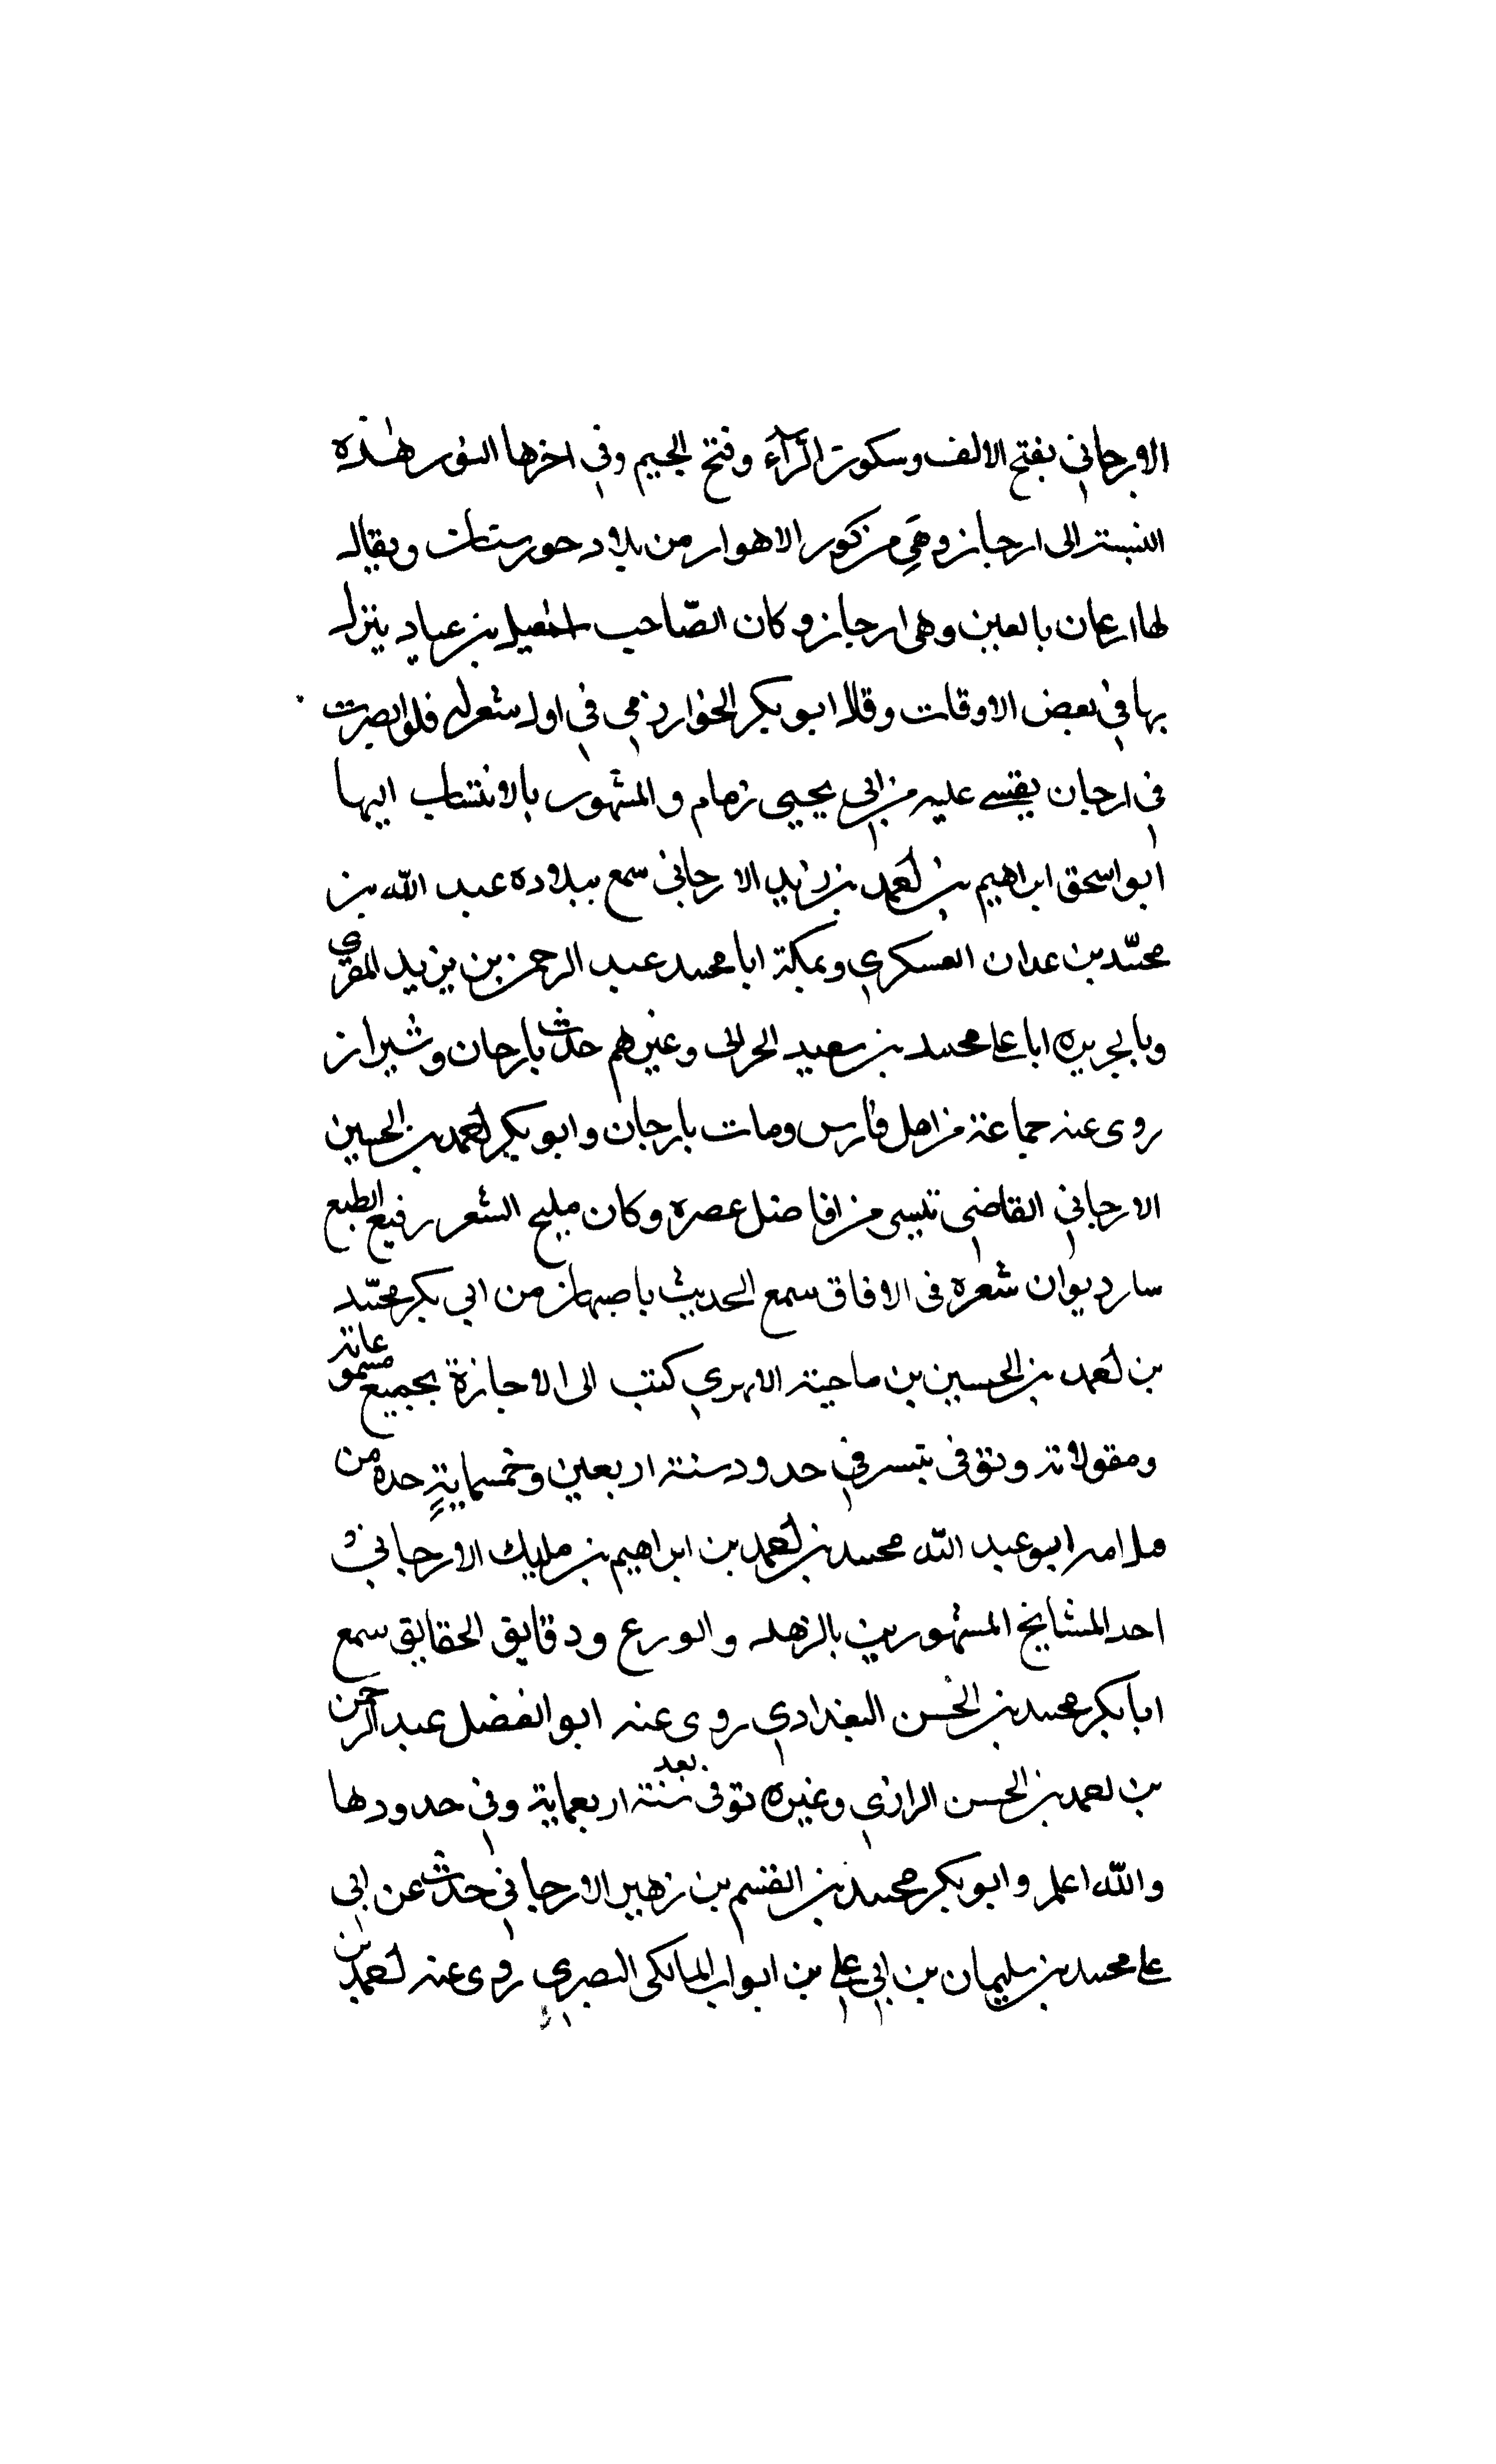 الارجاني بفتح الالف وسكون الرآء وفتح الجيم وفي اخرها النون هذه
النسبة الى ارجان وهي من كور الاهواز من بلاد خوزستان ويقال
لها ارغان بالغين وهي ارجان وكان الصّاحب اسمعيل بن عباد ينزل
بها في بعض الاوقات وقال ابو بكر الخوارزمي في اول شعر له فلو ابصرت
في ارجان نفسي عليه من ابي يحيى زمام والمشهور بالانتساب اليها
ابو اسحق ابراهيم بن احمد بن زيد الارجاني سمع ببلاده عبد الله بن
محمّد بن عدان العسكري وبمكة ابا محمد عبد الرحمن بن يزيد المقري
وبالجزيرة ابا علي محمد بن سعيد الحراني وغيرهم حدث بارجان وشيراز
روى عنه جماعة من اهل فارس ومات بارجان وابو بكر احمد بن الحسين
الارجاني القاضي تستر من افاضل عصره وكان مليح الشعر رفيع الطبع
سار ديوان شعره في الافاق سمع الحديث باصبهان من ابي بكر محمّد
بن احمد بن الحسين بن ماجة الابهري كتب الى الاجازة بجميع مسموعاته
ومقولاته وتوفي بتستر في حدود سنة اربعين وخمسماية حده من
ابو عبد الله محمد بن احمد بن ابراهيم بن مليك الارجاني
احد المشايخ المشهورين بالزهد والورع ودقايق الحقايق سمع
ابا بكر محمد بن الحسن البغدادي روى عنه ابو الفضل عبد الرحمن
بن احمد بن الحسن الرازي وغيره توفي بعد سنة اربعماية وفي حدودها
والله اعلم وابو بكر محمد بن القسم بن زهير الارجاني حدث عن ابي
علي محمد بن سليمان بن ابي علي بن ابواب المالكي البصري روى عنه احمد بن